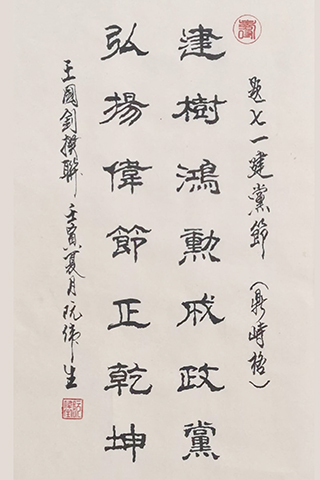 題七一建黨節（鼎峙格）
建樹鴻勳成政黨
弘揚偉節正乾坤
王國釗撰聯 壬寅夏月阮偉生